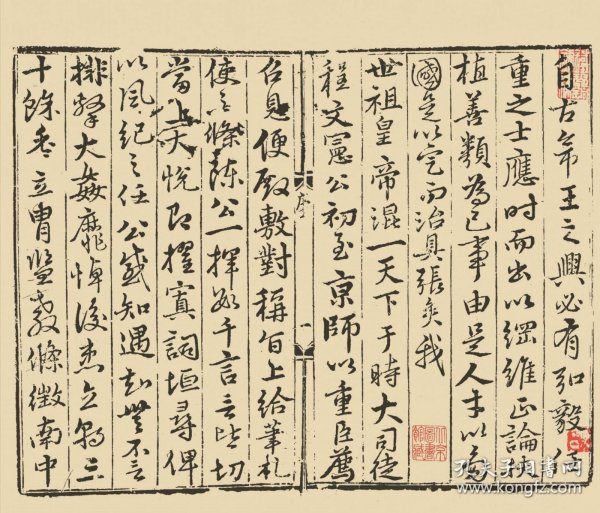 自古帝王之興必有弘毅
重之士應時而出以綱維正論扶
植善類為己事由是人才以多
國是以定而治具張矣我
世祖皇帝混一天下于時大司徒
程文憲公初至京師以重臣薦
序
一
召見便殿敷對稱旨上給筆札
使之條陳公一揮數千言言皆切
當上大悅即擢寘詞垣尋俾
以風紀之任公感知遇知無不言
排擊大姦靡憚後患立朝
十餘年立胄監教條徵南中
孔夫子旧书网
www.kongfz.com